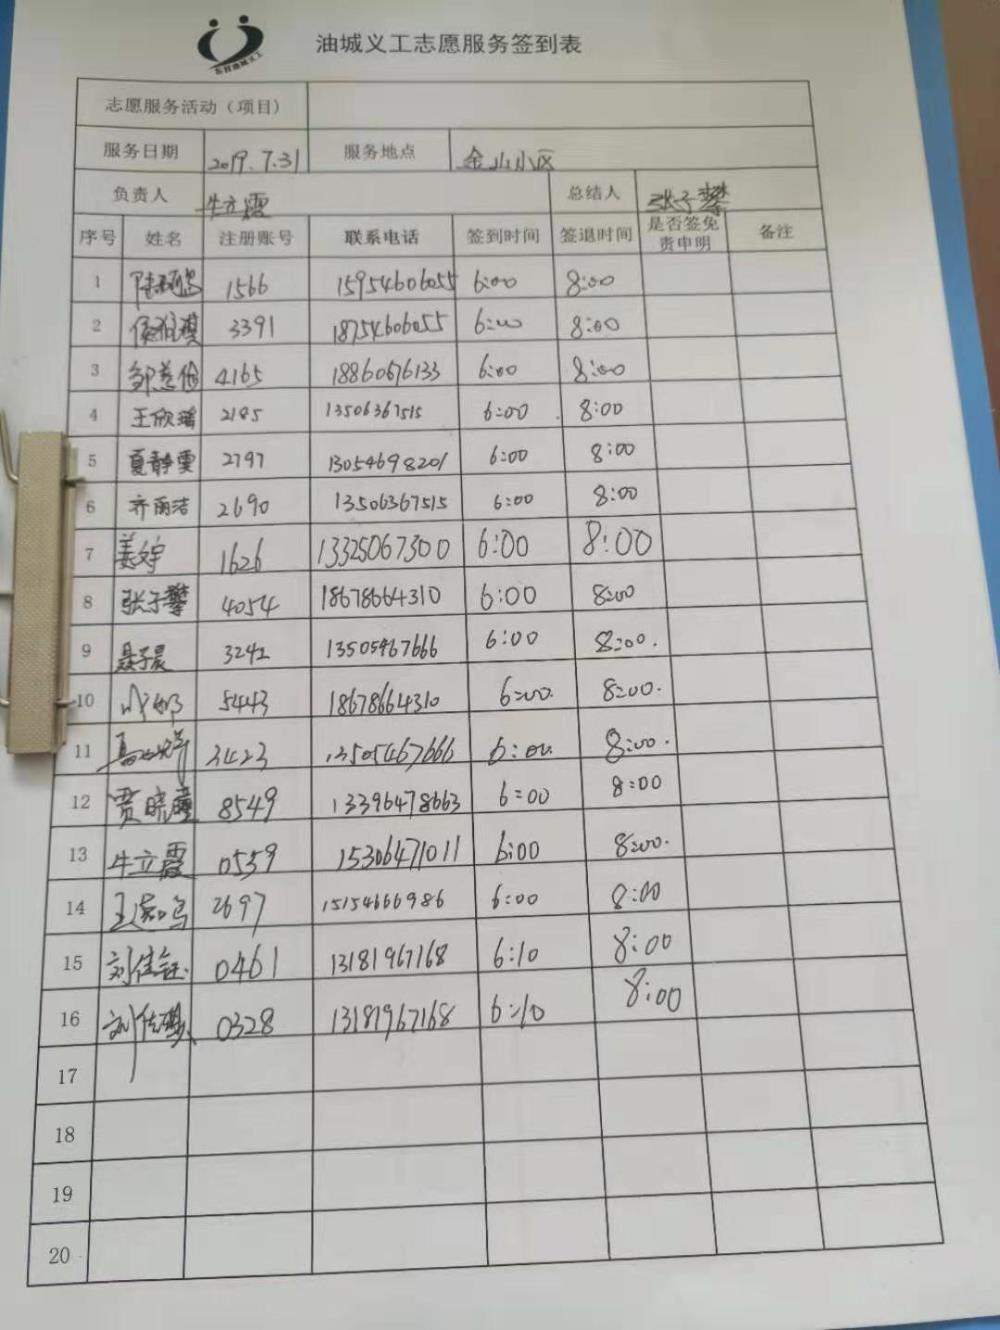 油城义工志愿服务签到表
志愿服务活动（项目）
服务日期 2019.7.31 服务地点 金山小区
负责人 牛立霞 总结人 张子攀
序号 姓名 注册账号 联系电话 签到时间 签退时间 是否签免责申明 备注
1 1566 15954606055 6:00 8:00
2 3391 18754606055 6:00 8:00
3 4165 18860676133 6:00 8:00
4 王欣瑞 2185 13506367515 6:00 8:00
5 夏静雯 2797 13054698201 6:00 8:00
6 齐雨洁 2690 13506367515 6:00 8:00
7 1626 13325067300 6:00 8:00
8 张子攀 4054 18678664310 6:00 8:00
9 聂子晨 3242 13505467666 6:00 8:00.
10 5443 18678664310 6:00. 8:00.
11 3423 13505467666 6:00. 8:00.
12 贾晓 8549 13396478663 6:00 8:00
13 牛立霞 0559 15306471011 6:00 8:00.
14 2697 15154666986 6:00 8:00
15 刘佳钰 0461 13181967168 6:10 8:00
16 刘佳 0328 13181967168 6:10 8:00
17
18
19
20